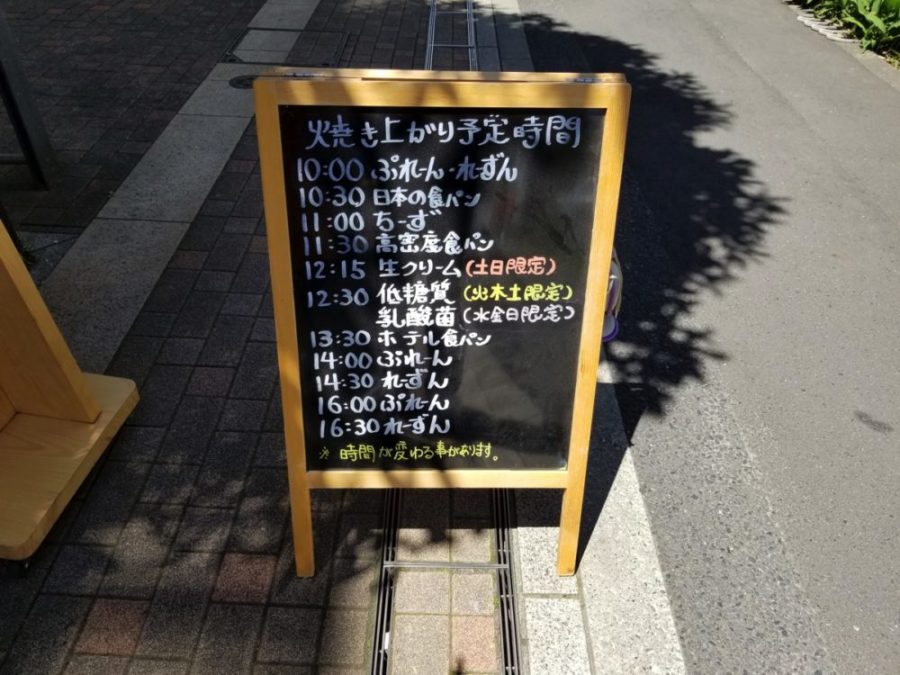 焼き上がり予定時間
10:00 ぷれーん・れーずん
10:30 日本の食パン
11:00 ちーず
11:30 高密度食パン
12:15 生クリーム(土日限定)
12:30 低糖質(火木土限定)
乳酸菌(水金日限定)
13:30 ホテル食パン
14:00 ぷれーん
14:30 れーずん
16:00 ぷれーん
16:30 れーずん
※ 時間が変わる事があります。